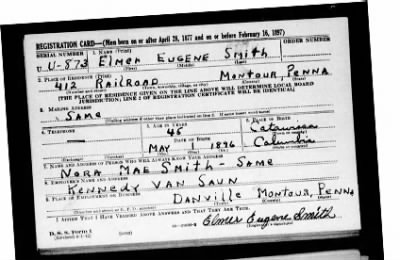 REGISTRATION CARD—(Men born on or after April 28, 1877 and on or before February 16, 1897)
SERIAL NUMBER 1. NAME (Print) ORDER NUMBER
U U-873 Elmer EUGENE Smith
(First) (Middle) (Last)
2. PLACE OF RESIDENCE (Print)
412 RAILROAD MONTOUR, PENNA
(Number and street) (Town, township, village, or city) (County) (State)
[THE PLACE OF RESIDENCE GIVEN ON THE LINE ABOVE WILL DETERMINE LOCAL BOARD
JURISDICTION; LINE 2 OF REGISTRATION CERTIFICATE WILL BE IDENTICAL]
3. MAILING ADDRESS
SAME
[Mailing address if other than place indicated on line 2. If same insert word same]
4. TELEPHONE 5. AGE IN YEARS 6. PLACE OF BIRTH
45 Catawissa
DATE OF BIRTH (Town or county)
MAY 1 1896 Columbia
(Exchange) (Number) (Mo.) (Day) (Yr.) (State or country)
7. NAME AND ADDRESS OF PERSON WHO WILL ALWAYS KNOW YOUR ADDRESS
NORA MAE SMITH - SAME
8. EMPLOYER'S NAME AND ADDRESS
KENNEDY VAN SAUN
9. PLACE OF EMPLOYMENT OR BUSINESS
DANVILLE MONTOUR, PENNA
(Number and street or R. F. D. number) (Town) (County) (State)
I AFFIRM THAT I HAVE VERIFIED ABOVE ANSWERS AND THAT THEY ARE TRUE.
D. S. S. Form 1
Elmer Eugene Smith
(Registrant's signature)